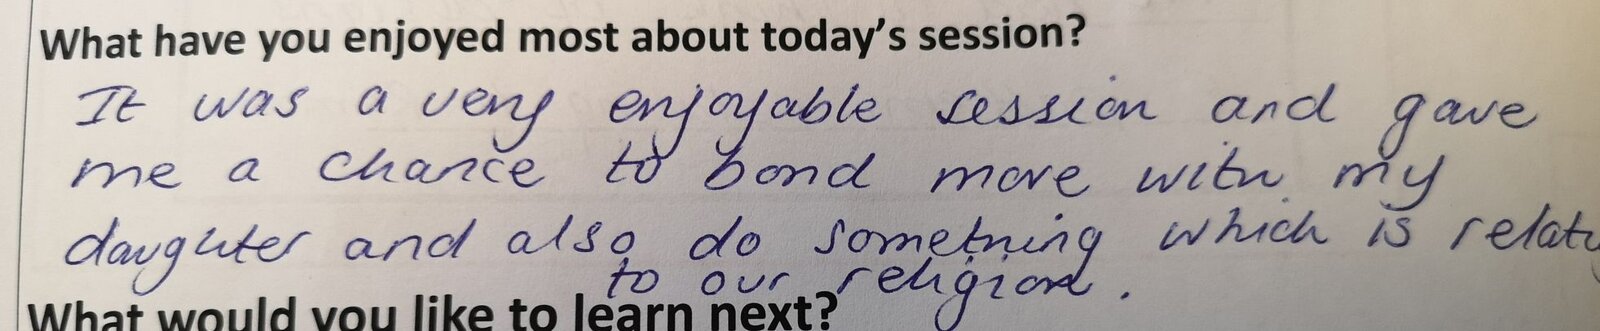 What have you enjoyed most about today's session?
It was a very enjoyable session and gave
me a chance to bond more with my
daughter and also do something which is
to our religion.
What would you like to learn next?